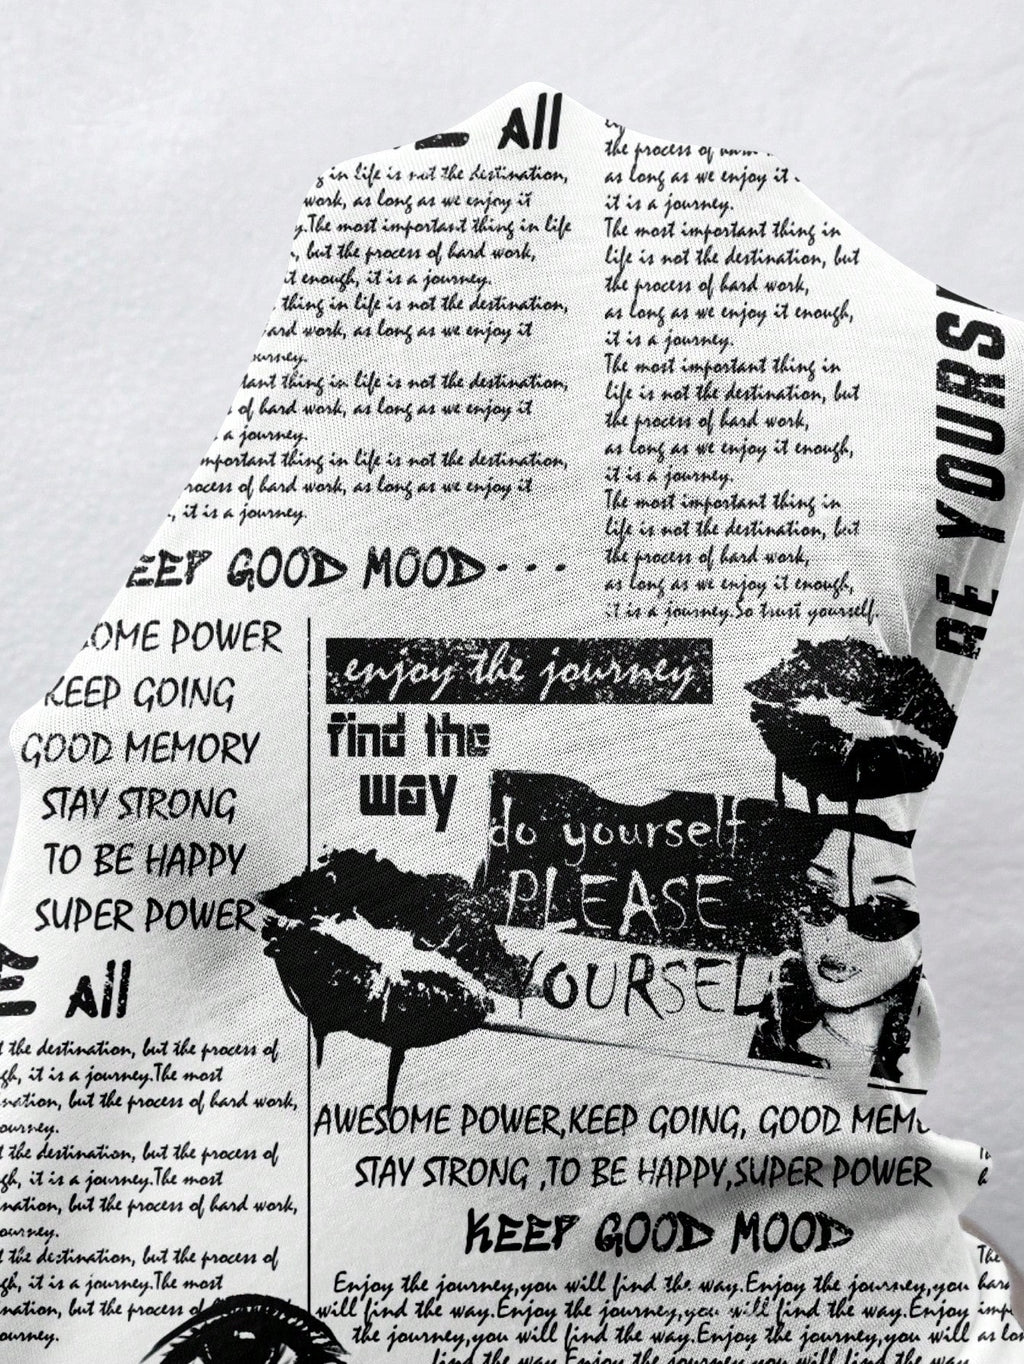 All
in life is not the destination,
work, as long as we enjoy it
The most important thing in life
, but the process of hard work,
it enough, it is a journey.
thing in life is not the destination,
hard work, as long as we enjoy it
journey.
thing in life is not the destination,
of hard work, as long as we enjoy it
a journey.
important thing in life is not the destination,
process of hard work, as long as we enjoy it
, it is a journey.
the process of
as long as we enjoy it
it is a journey.
The most important thing in
life is not the destination, but
the process of hard work,
as long as we enjoy it enough,
it is a journey.
The most important thing in
life is not the destination, but
the process of hard work,
as long as we enjoy it enough,
it is a journey.
The most important thing in
life is not the destination, but
the process of hard work,
as long as we enjoy it enough,
it is a journey.So trust yourself.
BE YOURS
KEEP GOOD MOOD···
OME POWER
KEEP GOING
GOOD MEMORY
STAY STRONG
TO BE HAPPY
SUPER POWER
enjoy the journey
find the
way
do yourself
PLEASE
YOURSEL
All
t the destination, but the process of
gh, it is a journey.The most
nation, but the process of hard work,
ourney.
t the destination, but the process of
gh, it is a journey.The most
nation, but the process of hard work,
ourney.
t the destination, but the process of
gh, it is a journey.The most
nation, but the process of
ourney.
AWESOME POWER,KEEP GOING, GOOD MEM
STAY STRONG ,TO BE HAPPY,SUPER POWER
KEEP GOOD MOOD
Enjoy the journey,you will find the way.Enjoy the journey,you
will find the way.Enjoy the journey,you will find the way.Enjoy
the journey,you will find the way.Enjoy the journey,you will
find the way.Enjoy the journey,you will find the way
The
hard
imp
as lon